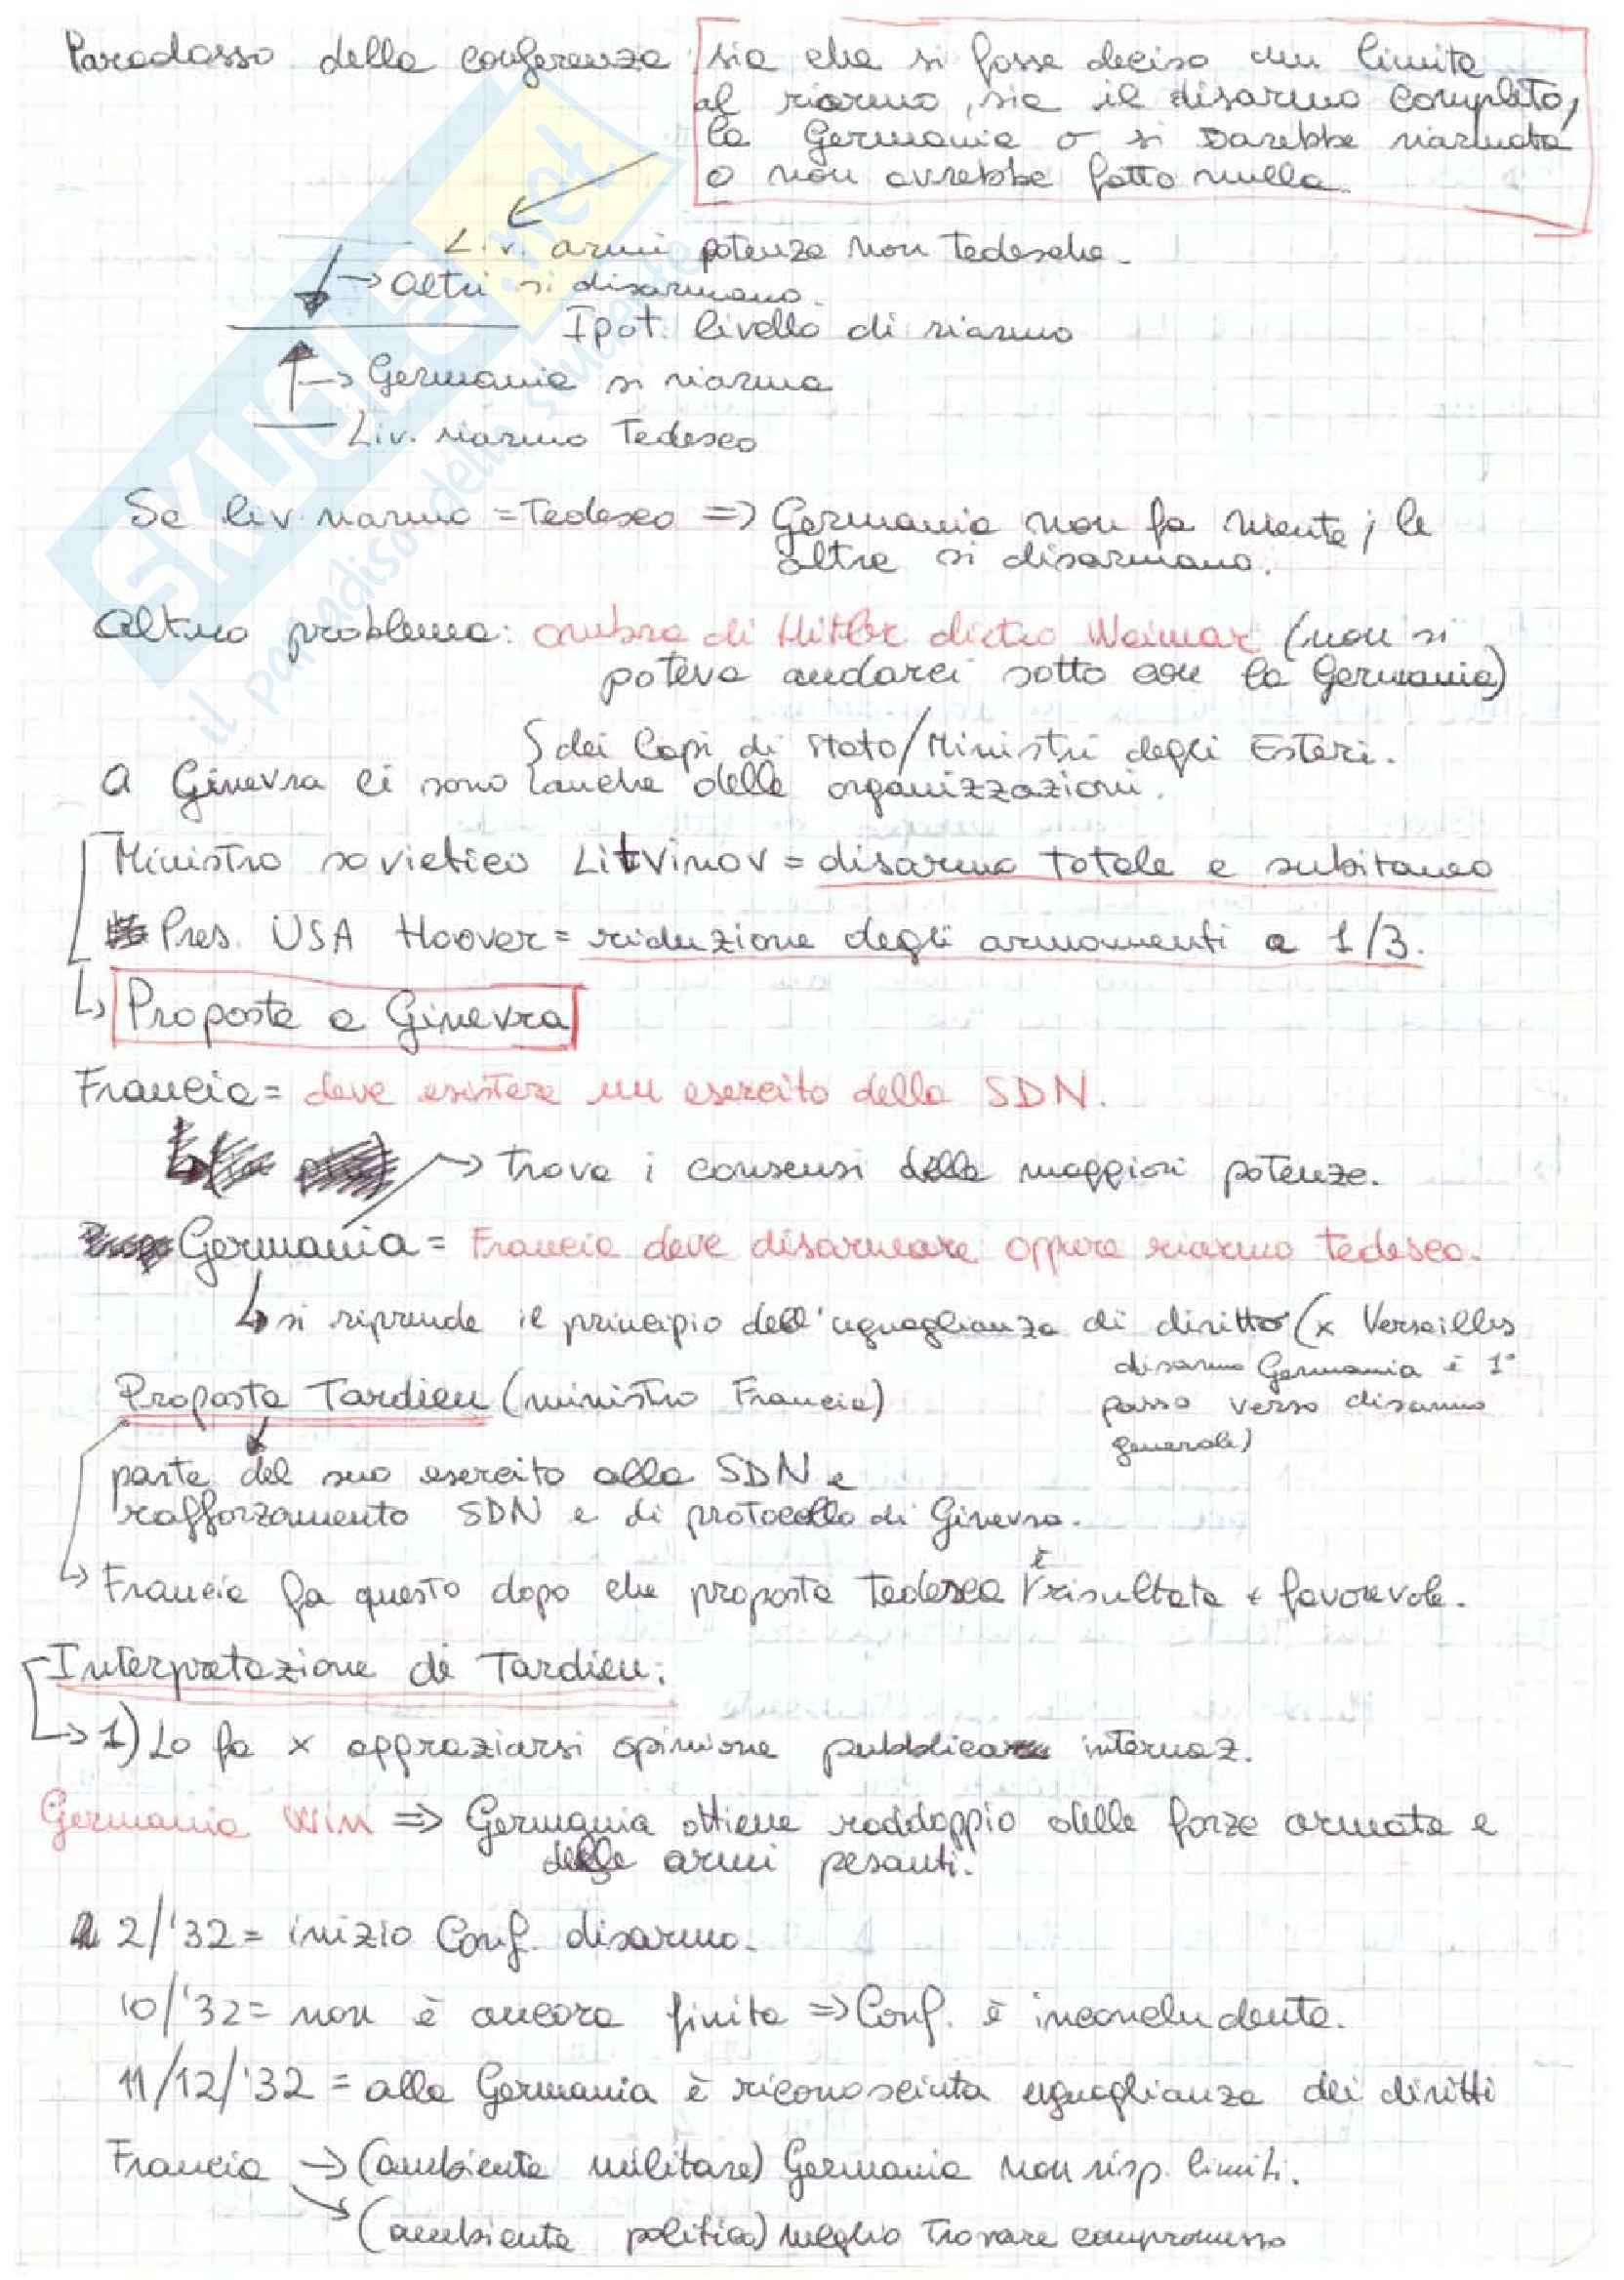 Paradosso della conferenza: sia che si fosse deciso un limite
al riarmo, sia il disarmo completo,
la Germania o si sarebbe riarmata
o non avrebbe fatto nulla.
Liv. armi potenze non tedesche.
→ Altri si disarmano.
Ipot. livello di riarmo
→ Germania si riarma
Liv. riarmo Tedesco
Se liv. riarmo = Tedesco => Germania non fa niente; le
altre si disarmano.
Altro problema: ombra di Hitler dietro Weimar (non si
poteva andarci sotto con la Germania)
dei Capi di Stato/Ministri degli Esteri.
A Ginevra ci sono anche delle organizzazioni.
Ministro sovietico Litvinov = disarmo totale e subitaneo
Pres. USA Hoover = riduzione degli armamenti a 1/3.
↳ Proposte a Ginevra
Francia = deve esistere un esercito della SDN.
→ trova i consensi delle maggiori potenze.
Germania = Francia deve disarmare oppure riarmo tedesco.
↳ si riprende il principio dell'uguaglianza di diritto (x Versailles
disarmo Germania è 1°
Proposta Tardieu (ministro Francia)
passo verso disarmo
generale)
parte del suo esercito alla SDN e
rafforzamento SDN e di protocollo di Ginevra.
↳ Francia fa questo dopo che proposta tedesca è risultata + favorevole.
Interpretazione di Tardieu:
→ 1) Lo fa x aggraziarsi opinione pubblica internaz.
Germania WIN => Germania ottiene raddoppio delle forze armate e
delle armi pesanti.
2/'32 = inizio Conf. disarmo.
10/'32 = non è ancora finita => Conf. è inconcludente.
11/12/'32 = alla Germania è riconosciuta uguaglianza dei diritti
Francia → (ambiente militare) Germania non risp. limiti.
(ambiente politico) meglio trovare compromesso
SKUOLA.net
il paradiso dello studente